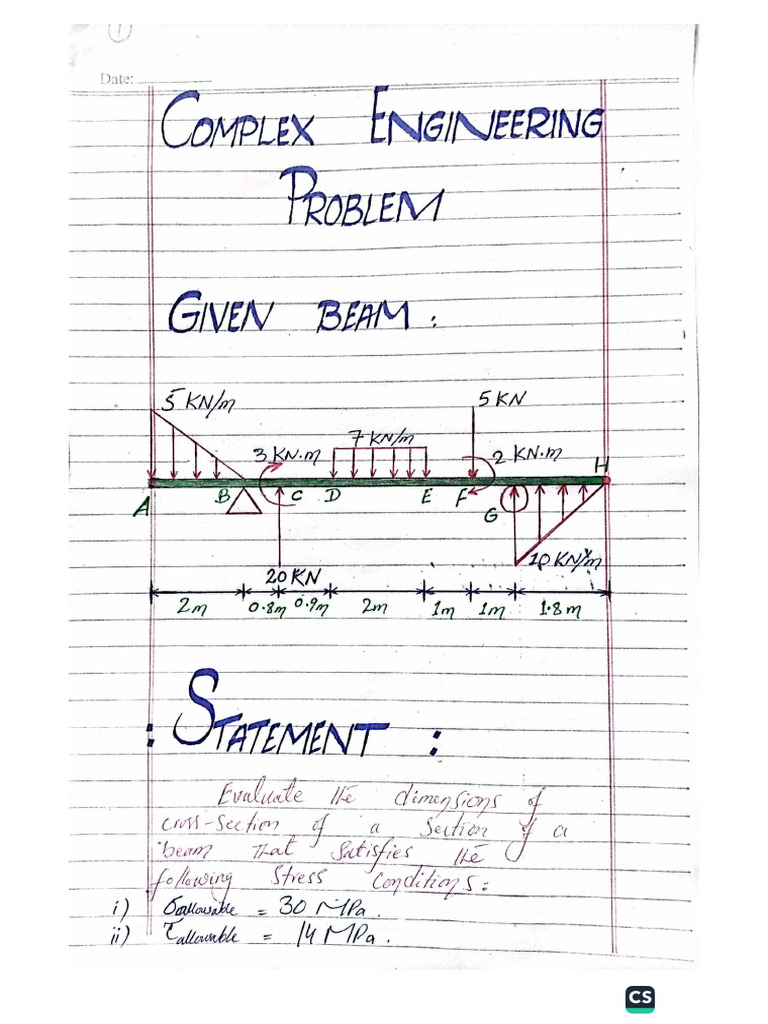 1
Date:
COMPLEX ENGINEERING
PROBLEM
GIVEN BEAM :
5 KN/m
5 KN
7 KN/m
3 KN.m
2 KN.m
H
A
B
C
D
E
F
G
20 KN
10 KN/m
2m
0.8m
0.9m
2m
1m
1m
1.8m
: STATEMENT :
Evaluate the dimensions of
cross-section of a section of a
beam that satisfies the
following stress conditions:
i) σallowable = 30 MPa.
ii) τallowable = 14 MPa.
CS